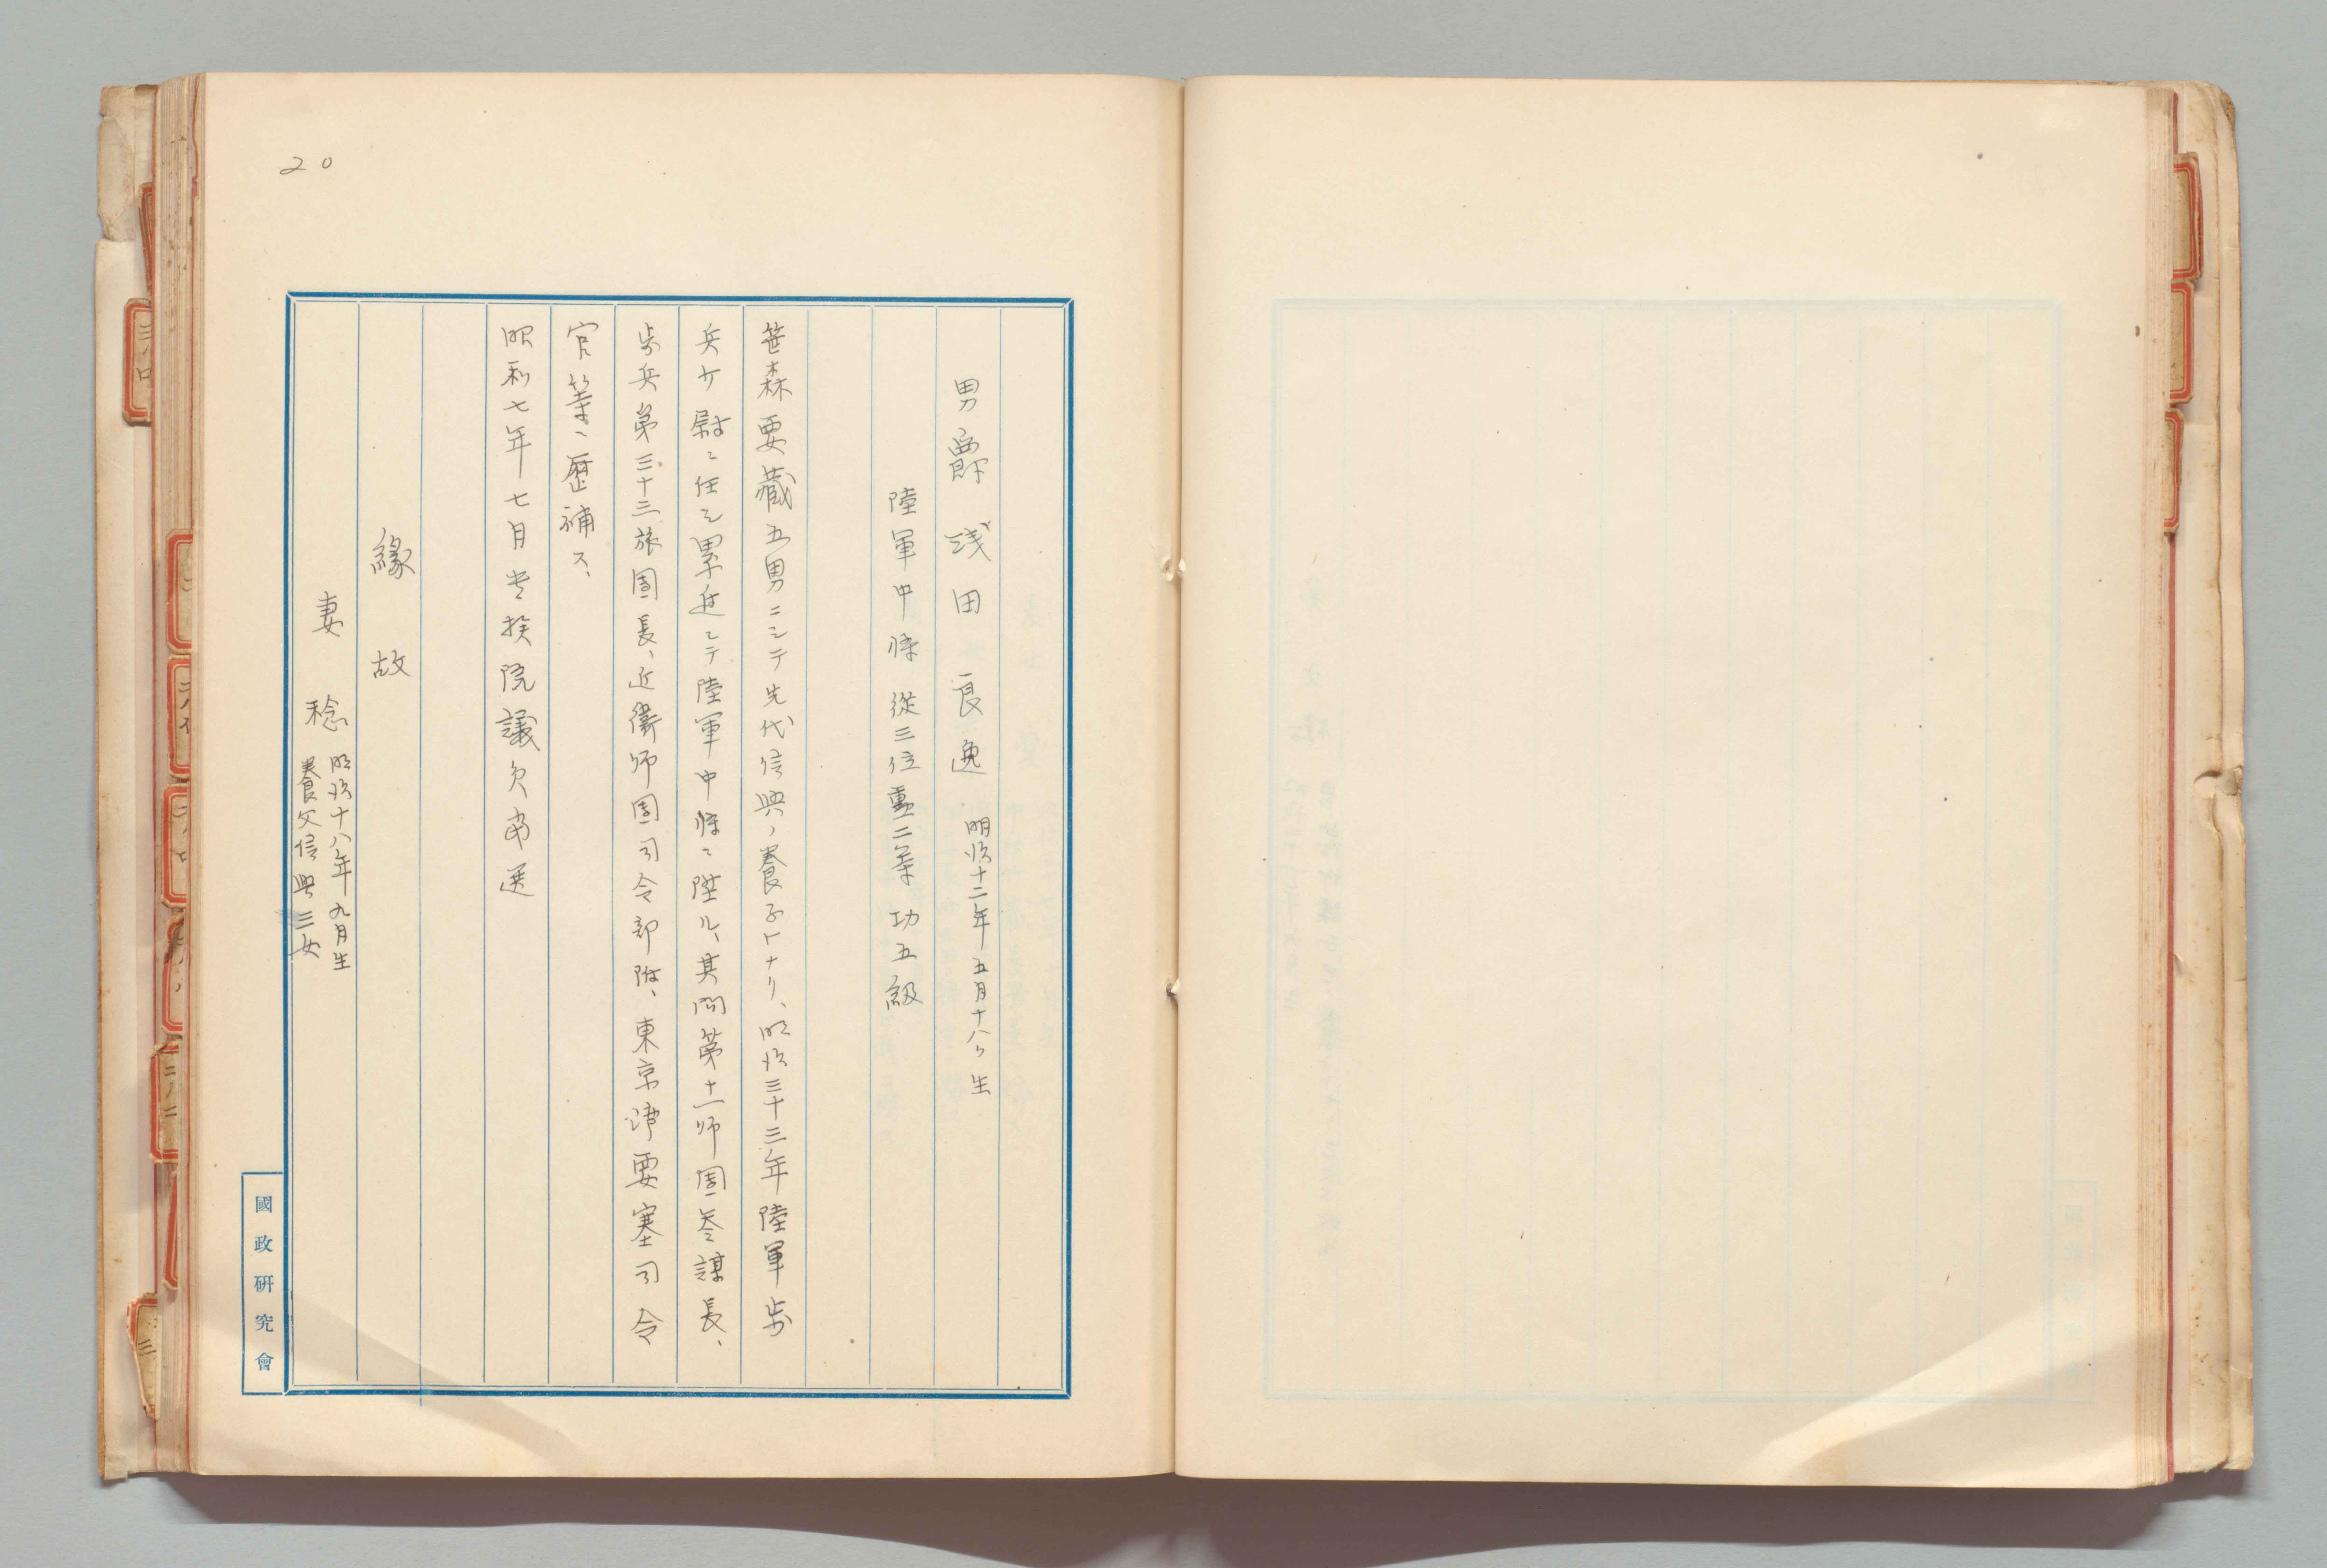 20
男爵 浅田 良逸 明治十二年五月十八日生
陸軍中将 從三位勲二等 功五級
笹森要藏五男ニシテ先代信興ノ養子トナリ、明治三十三年陸軍歩
兵少尉ニ任シ累進シテ陸軍中将ニ陞ル、其間第十一師團参謀長、
歩兵第三十三旅團長、近衛師團司令部附、東京湾要塞司令
官等ニ歴補ス、
昭和七年七月貴族院議員当選
縁故
妻 稔 明治十八年九月生
養父信興三女
國政研究會